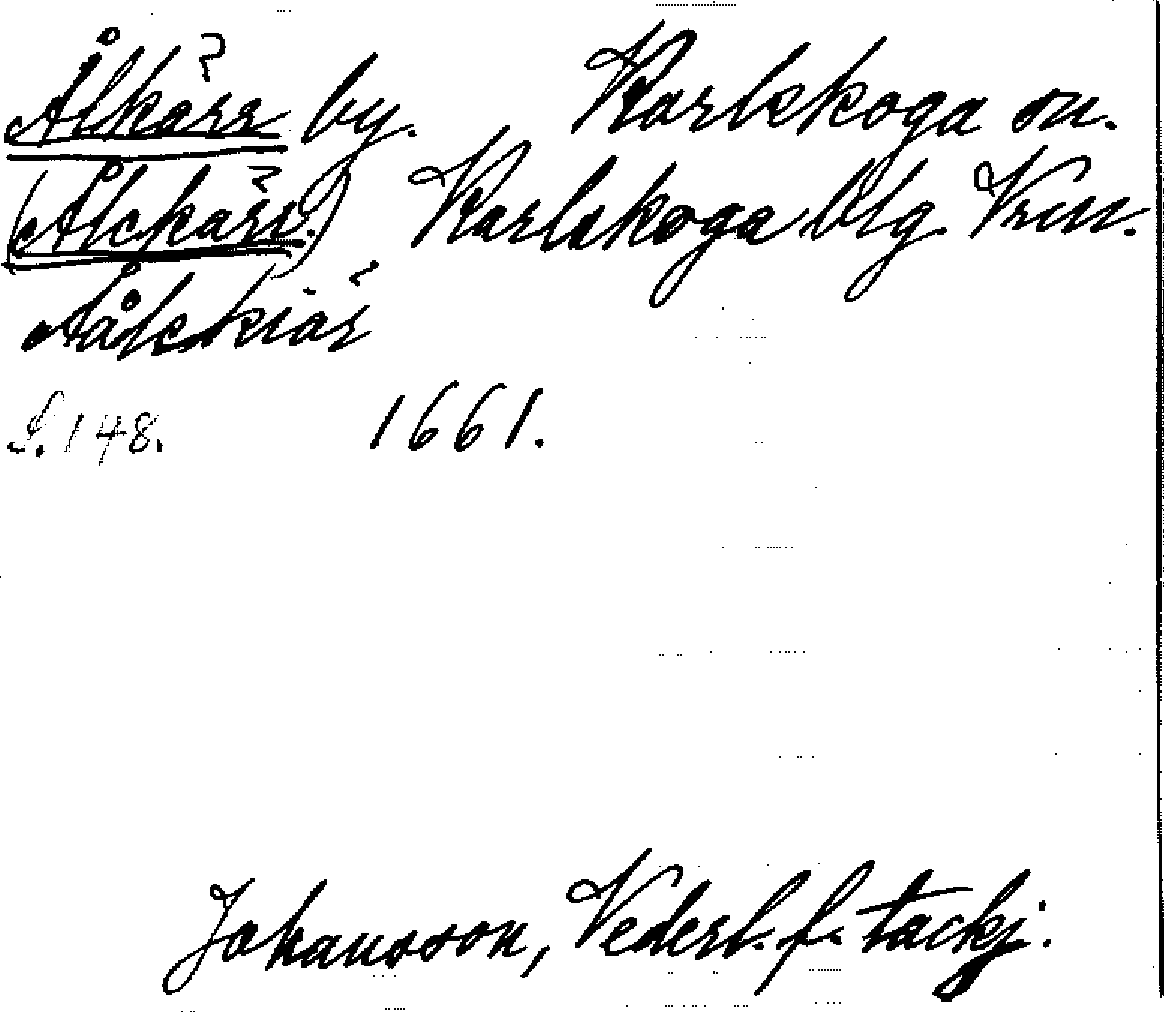 Ålkärr by. Karlskoga sn.
(Älckärr.) Karlskoga Blg. Vrm.
Aålckiär
S. 148. 1661.
Johansson, Vederl. f. tackj.